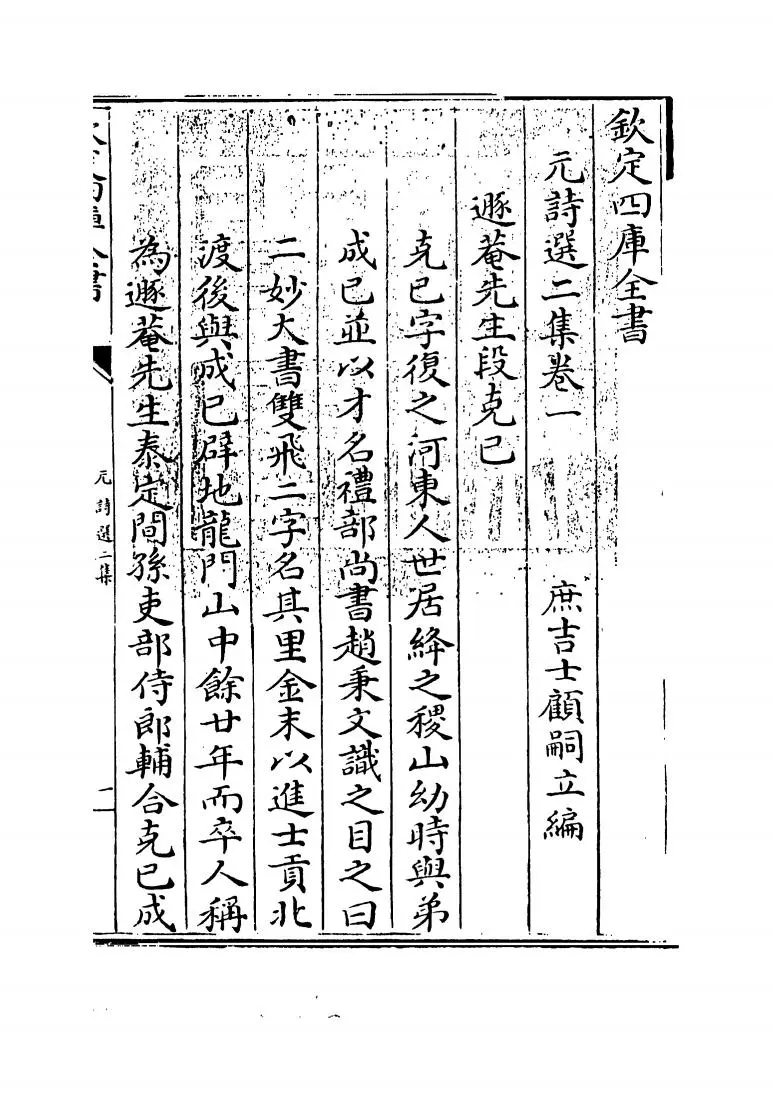 欽定四庫全書
元詩選二集卷一
庶吉士顧嗣立編
遯菴先生段克已
克已字復之河東人世居絳之稷山幼時與弟
成已並以才名禮部尚書趙秉文識之目之曰
二妙大書雙飛二字名其里金末以進士貢北
渡後與成已辟地龍門山中餘廿年而卒人稱
為遯菴先生泰定間孫吏部侍郎輔合克已成
元詩選二集
二